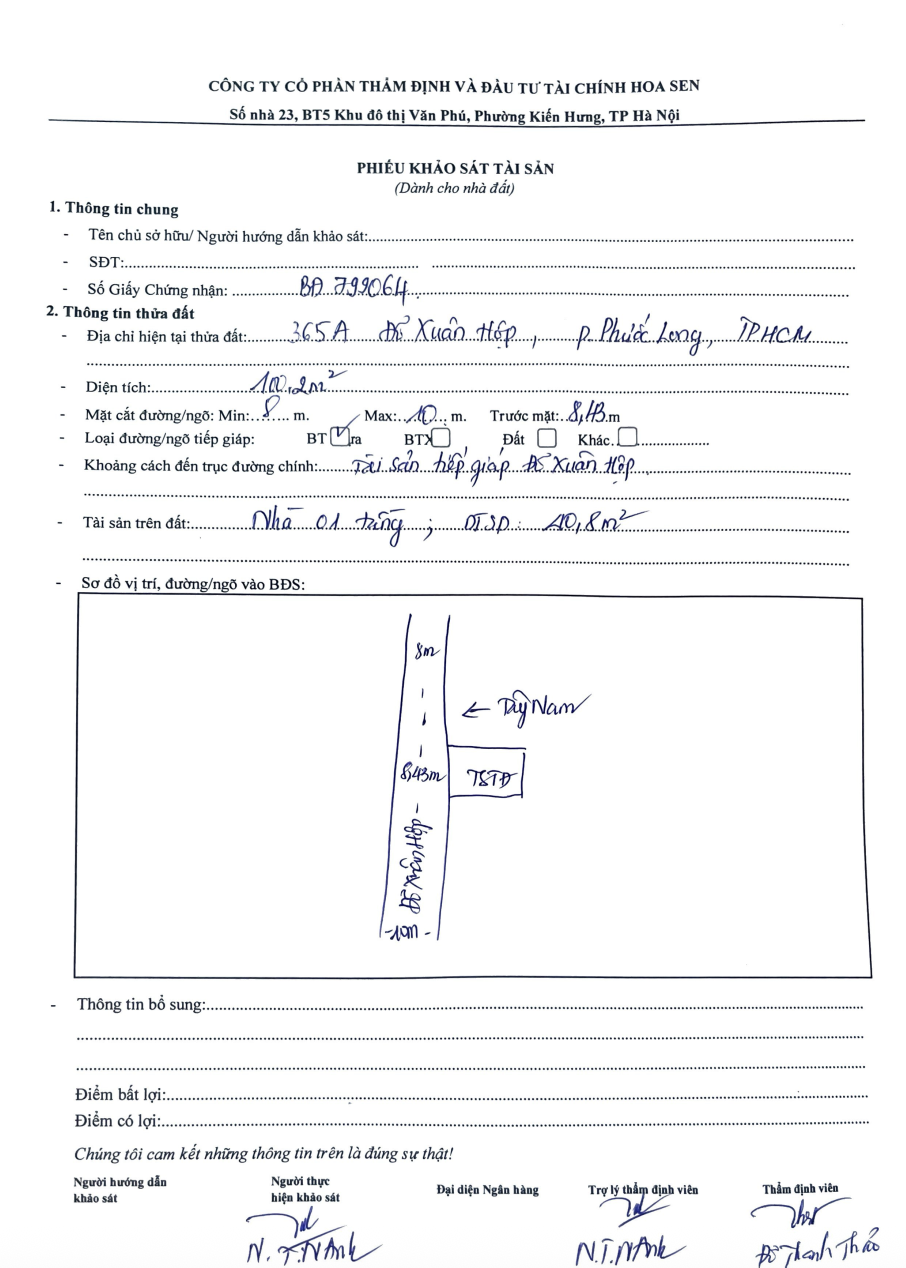 CÔNG TY CỔ PHẦN THẨM ĐỊNH VÀ ĐẦU TƯ TÀI CHÍNH HOA SEN
Số nhà 23, BT5 Khu đô thị Văn Phú, Phường Kiến Hưng, TP Hà Nội
PHIẾU KHẢO SÁT TÀI SẢN
(Dành cho nhà đất)
1. Thông tin chung
- Tên chủ sở hữu/ Người hướng dẫn khảo sát:
- SĐT:
- Số Giấy Chứng nhận: BA 799064
2. Thông tin thửa đất
- Địa chỉ hiện tại thửa đất: 365A Đỗ Xuân Hợp, P. Phước Long, TP.HCM
- Diện tích: 100,2m²
- Mặt cắt đường/ngõ: Min: 8 m. Max: 10 m. Trước mặt: 8,43 m
- Loại đường/ngõ tiếp giáp: BT ra BTX Đất Khác
- Khoảng cách đến trục đường chính: Tài sản tiếp giáp Đỗ Xuân Hợp
- Tài sản trên đất: Nhà 01 tầng; DTSD: 40,8m²
- Sơ đồ vị trí, đường/ngõ vào BĐS:
8m
← Tây Nam
8,43m TSTĐ
10m
- Thông tin bổ sung:
Điểm bất lợi:
Điểm có lợi:
Chúng tôi cam kết những thông tin trên là đúng sự thật!
Người hướng dẫn khảo sát Người thực hiện khảo sát Đại diện Ngân hàng Trợ lý thẩm định viên Thẩm định viên
N.T.N Anh N.T.N Anh Đỗ Thanh Thảo